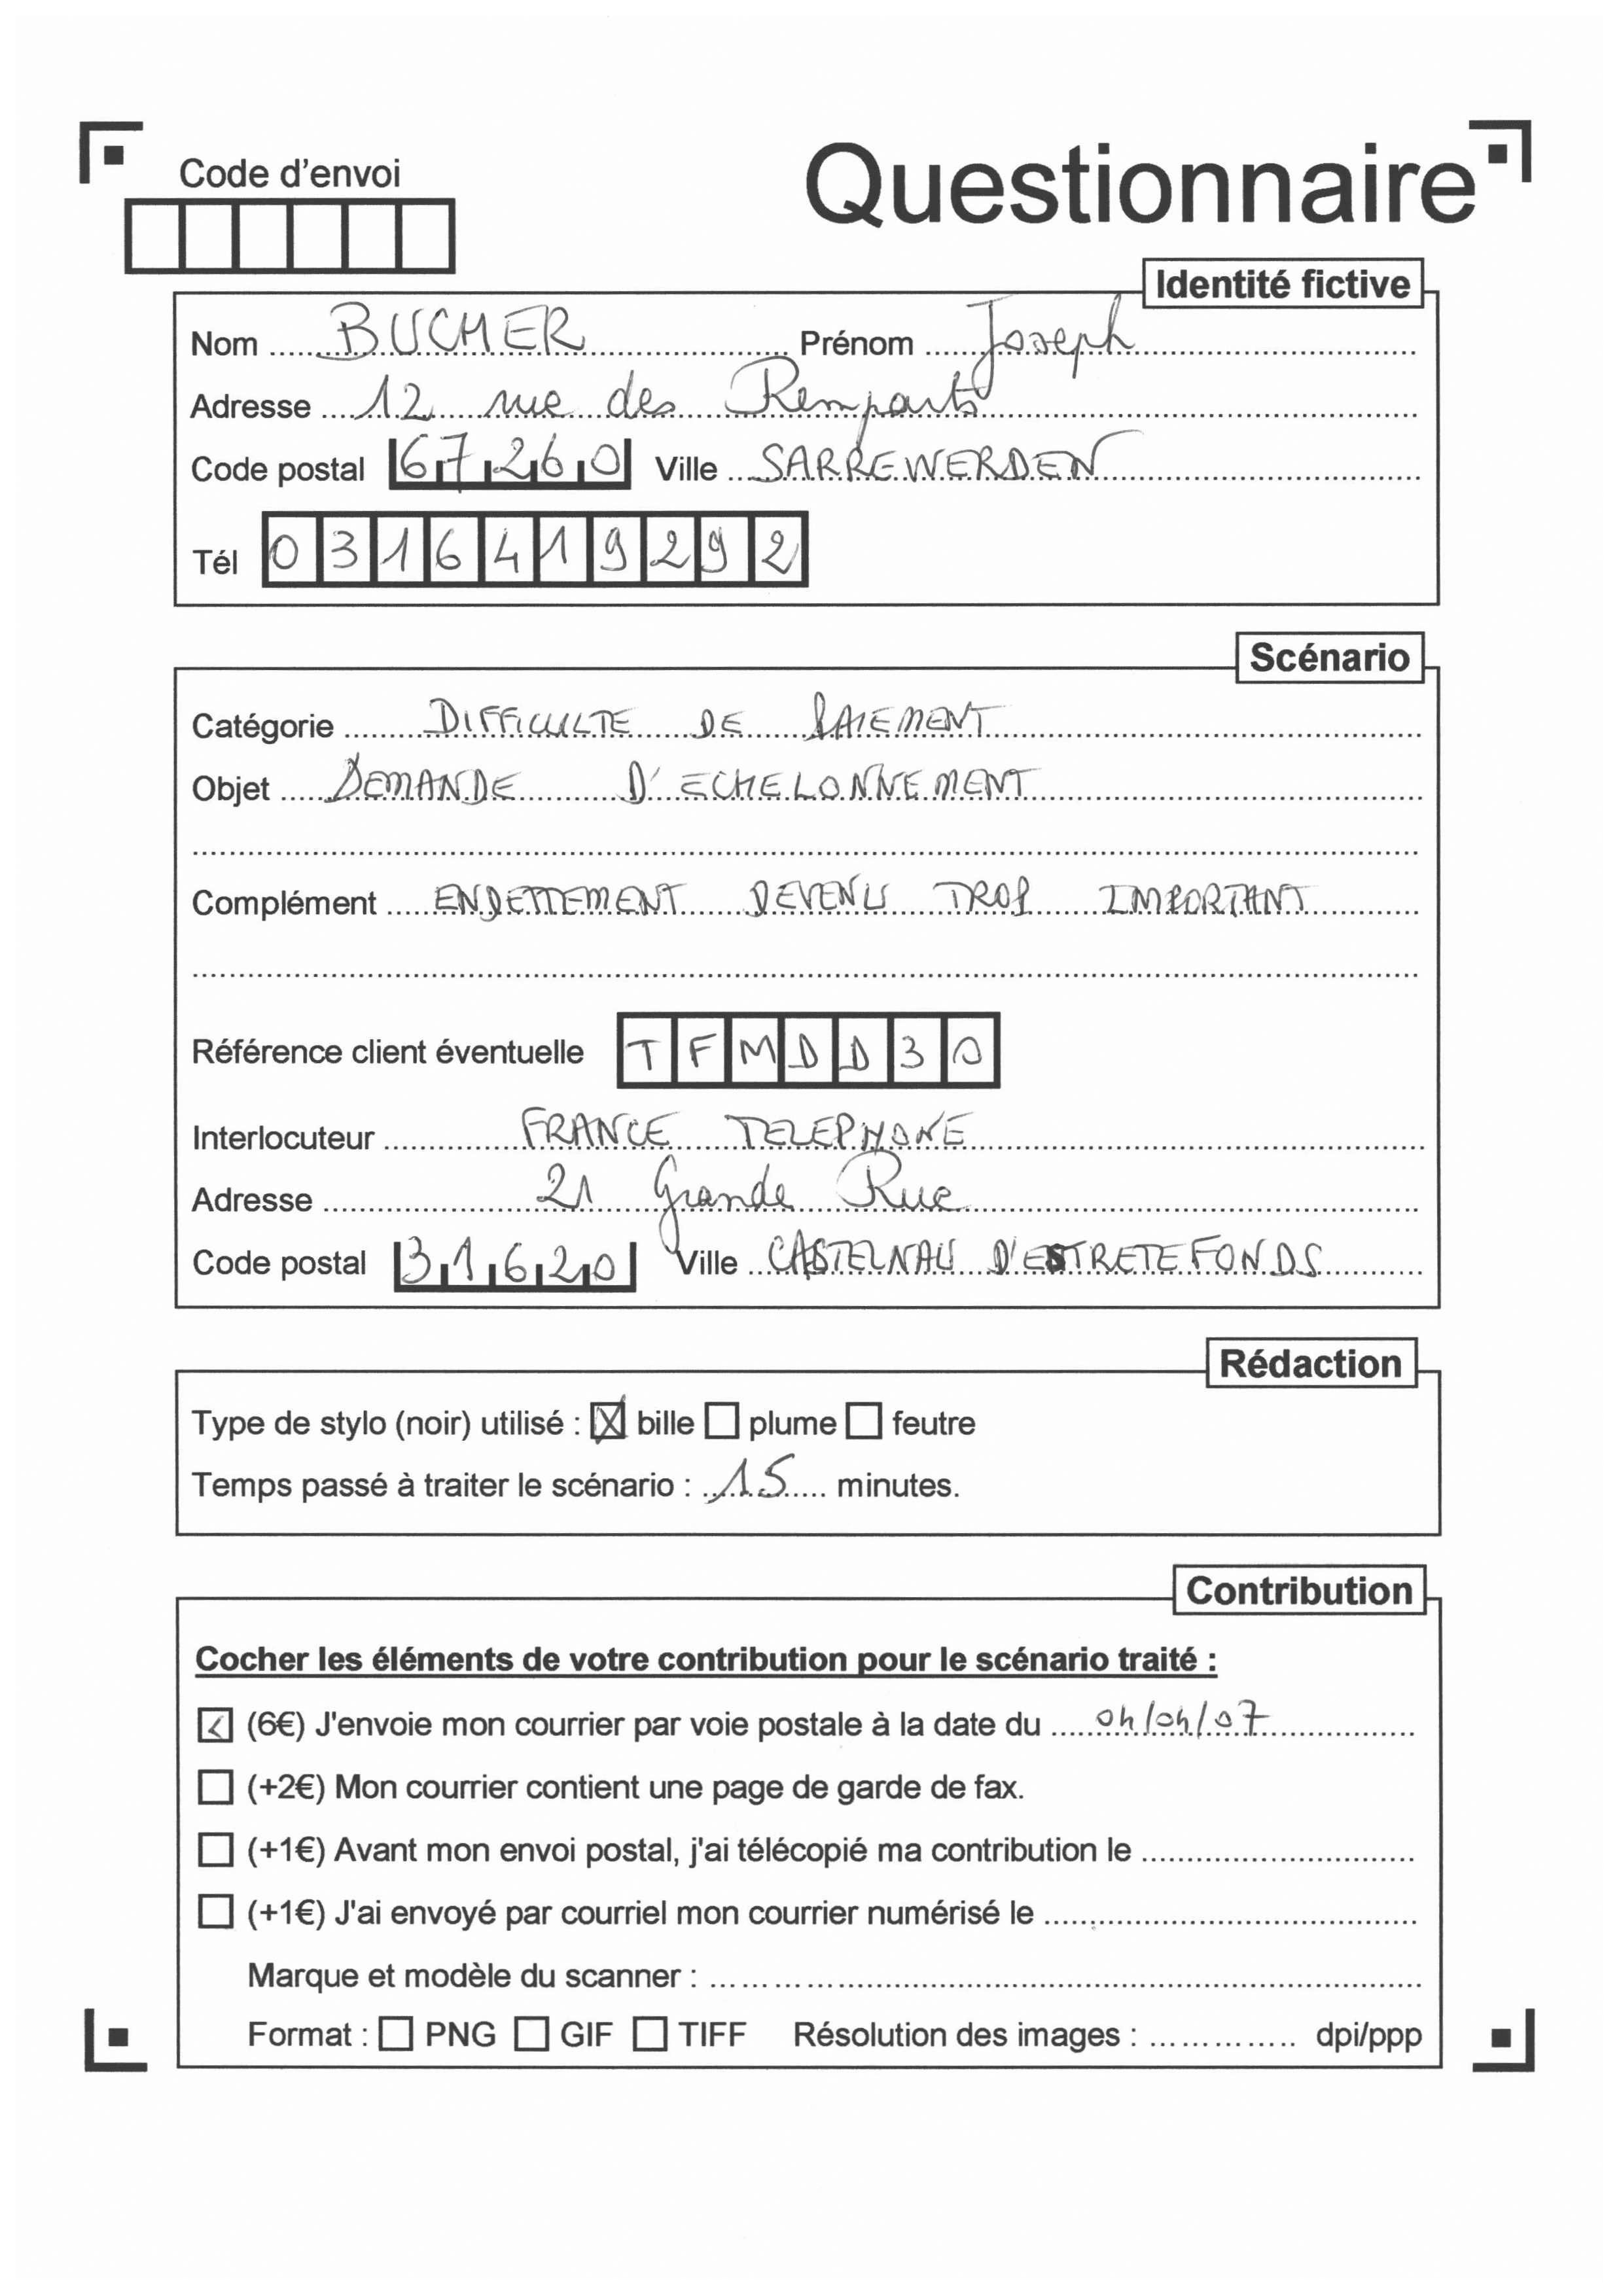 Code d'envoi
Questionnaire
Identité fictive
Nom BUCHER Prénom Joseph
Adresse 12 rue des Remparts
Code postal 67260 Ville SARREWERDEN
Tél 0316419292
Scénario
Catégorie DIFFICULTE DE PAIEMENT
Objet DEMANDE D'ECHELONNEMENT
Complément ENDETTEMENT DEVENU TROP IMPORTANT
Référence client éventuelle TFMDD30
Interlocuteur FRANCE TELEPHONE
Adresse 21 Grande Rue
Code postal 31620 Ville CASTELNAU D'ESTRETEFONDS
Rédaction
Type de stylo (noir) utilisé : bille plume feutre
Temps passé à traiter le scénario : 15 minutes.
Contribution
Cocher les éléments de votre contribution pour le scénario traité :
(6€) J'envoie mon courrier par voie postale à la date du 04/04/07
(+2€) Mon courrier contient une page de garde de fax.
(+1€) Avant mon envoi postal, j'ai télécopié ma contribution le
(+1€) J'ai envoyé par courriel mon courrier numérisé le
Marque et modèle du scanner :
Format : PNG GIF TIFF Résolution des images : dpi/ppp